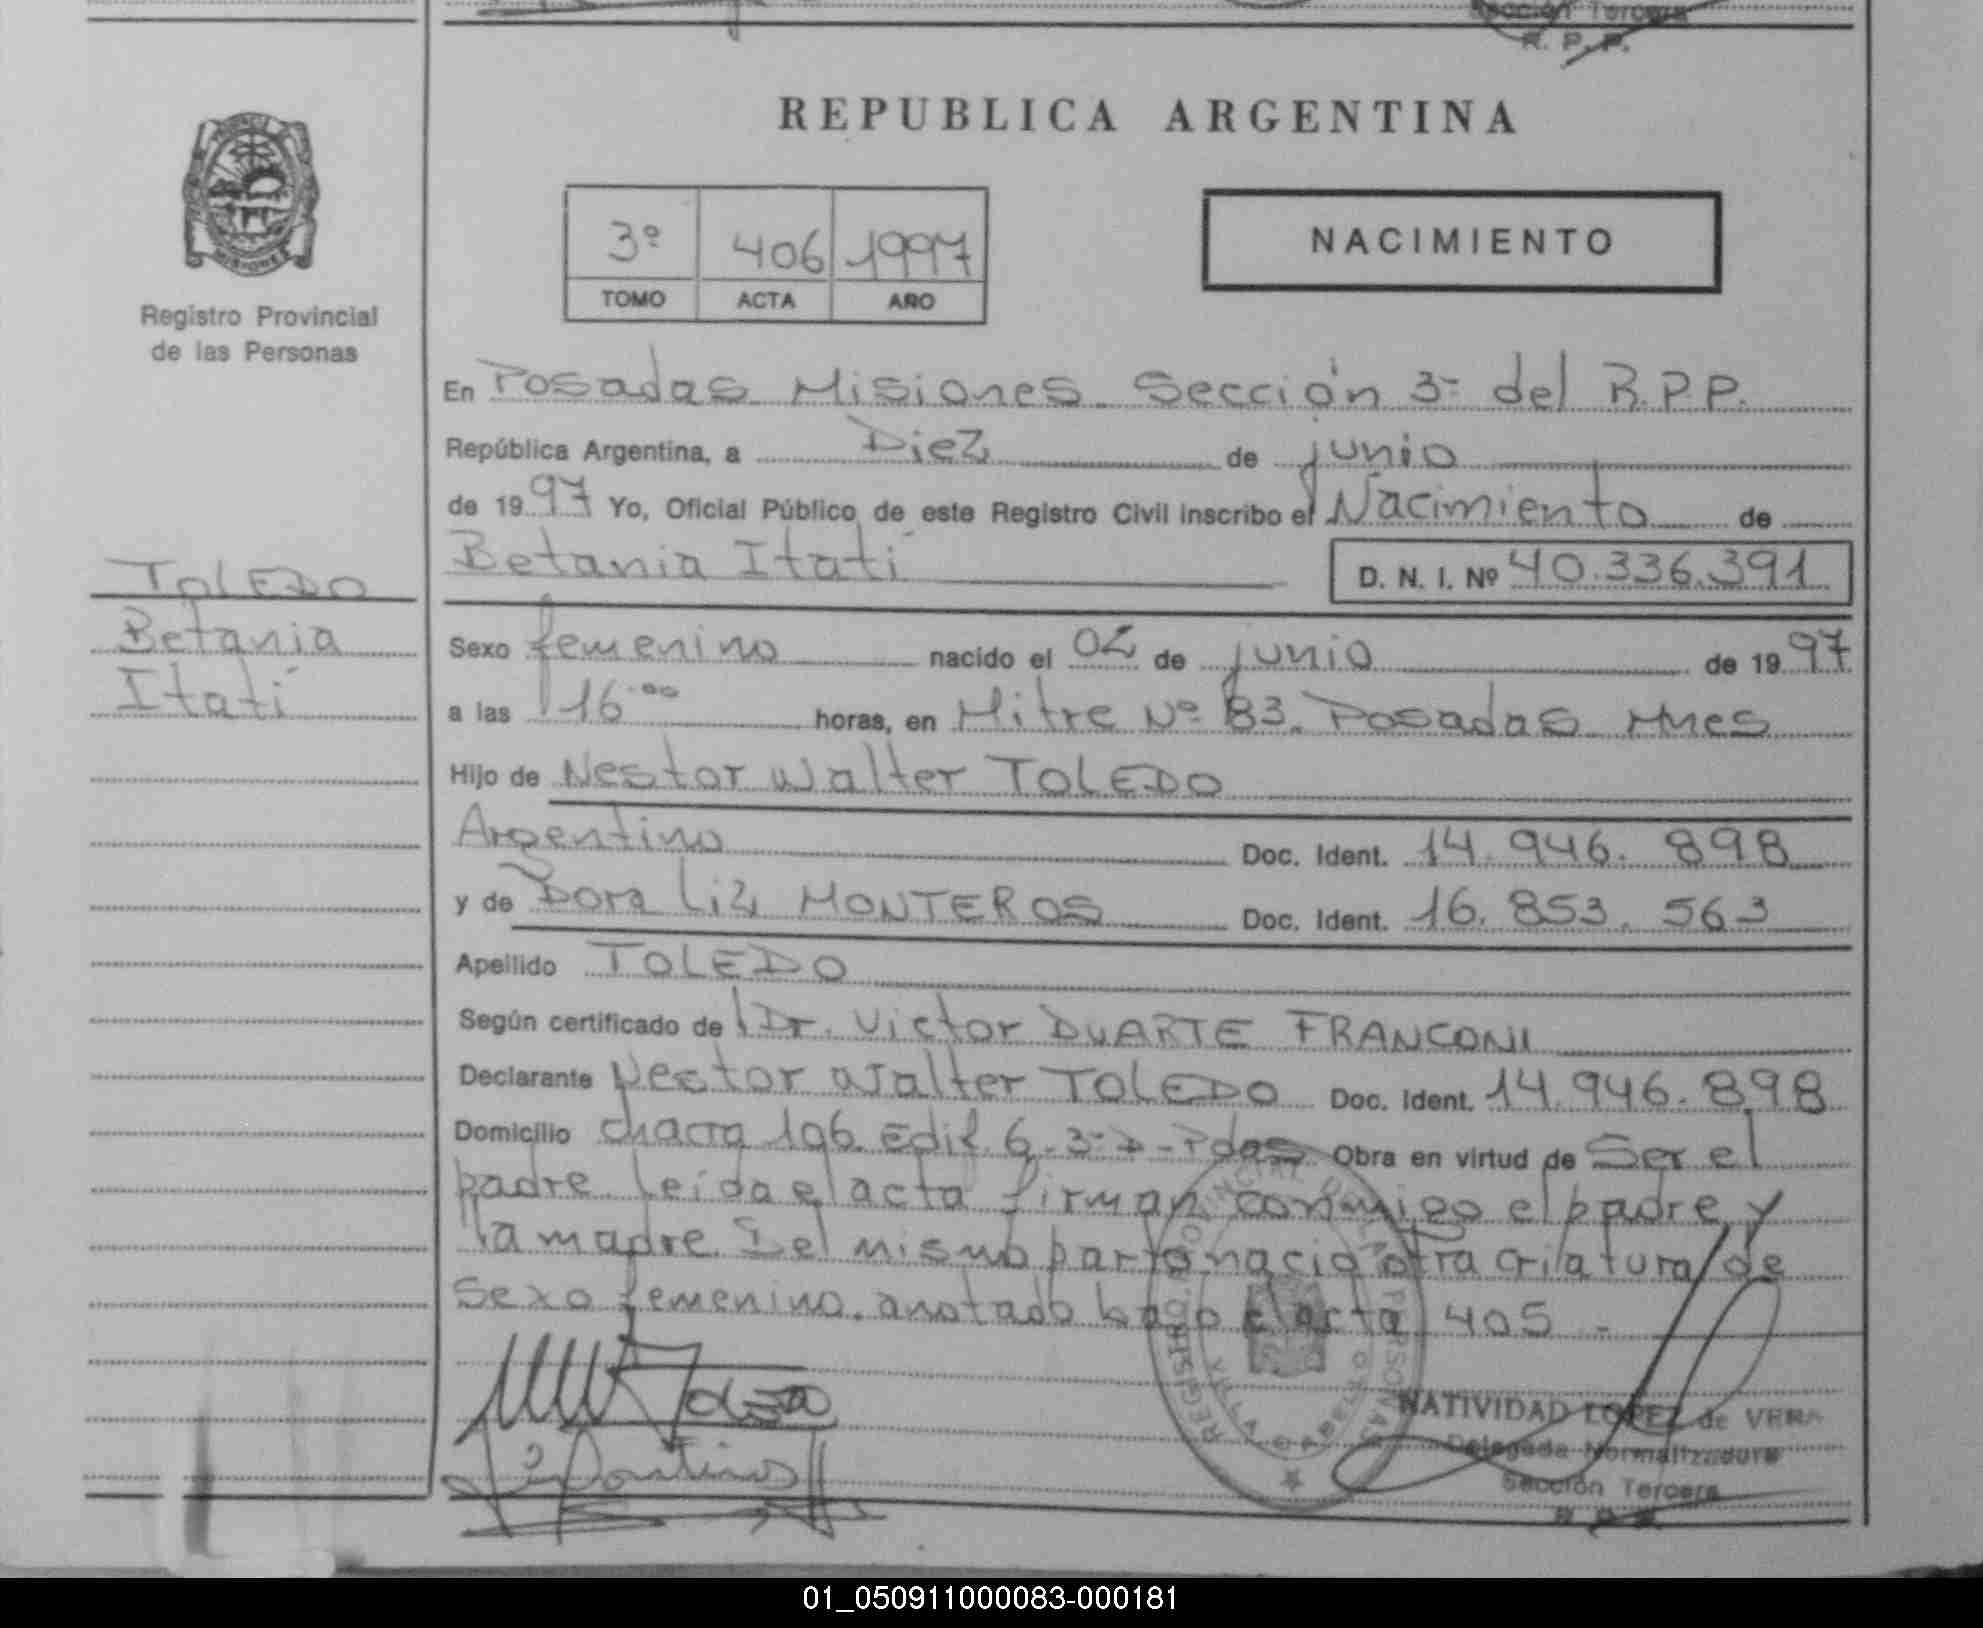 Sección Tercera
R. P. P.
MISIONES
Registro Provincial
de las Personas
TOLEDO
Betania
Itatí
REPUBLICA ARGENTINA
3º 406 1997
TOMO ACTA AÑO
NACIMIENTO
En Posadas Misiones Sección 3ª del R.P.P.
República Argentina, a Diez de junio
de 1997 Yo, Oficial Público de este Registro Civil inscribo el Nacimiento de
Betania Itatí D. N. I. Nº 40.336.391
Sexo femenino nacido el 02 de junio de 1997
a las 16.00 horas, en Mitre Nº 83. Posadas Mnes
Hijo de Nestor Walter TOLEDO
Argentino Doc. Ident. 14.946.898
y de Dora Liz MONTEROS Doc. Ident. 16.853.563
Apellido TOLEDO
Según certificado de Dr. Victor DUARTE FRANCONI
Declarante Nestor Walter TOLEDO Doc. Ident. 14.946.898
Domicilio chacra 196. Edif. 6 - 3º D - Pdas Obra en virtud de Ser el
padre. Leída el acta firman conmigo el padre y
la madre. Del mismo parto nació otra criatura de
sexo femenino. anotado bajo el acta 405 -
NATIVIDAD LOPEZ de VERA
Delegada Normalizadora
Sección Tercera
01_050911000083-000181